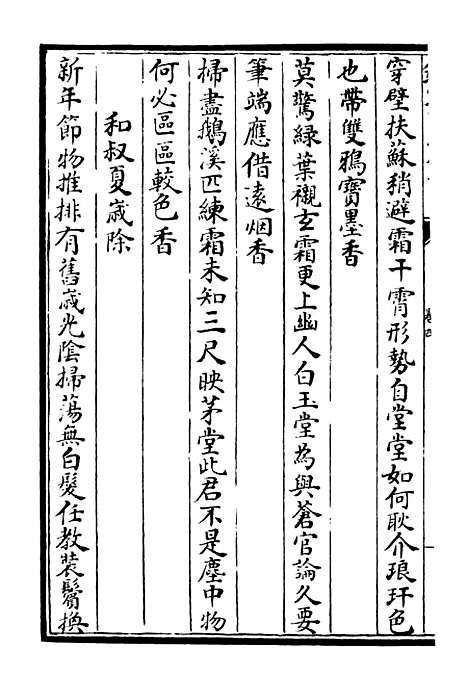 穿壁扶蘇稍避霜干霄形勢自堂堂如何耿介琅玕色
也帶雙鴉寶墨香
莫驚綠葉襯玄霜更上幽人白玉堂為與蒼官論久要
筆端應借遠烟香
掃盡鵝溪匹練霜未知三尺映茅堂此君不是塵中物
何必區區較色香
和叔夏歲除
新年節物推排有舊歲光陰掃蕩無白髮任教裝鬢換